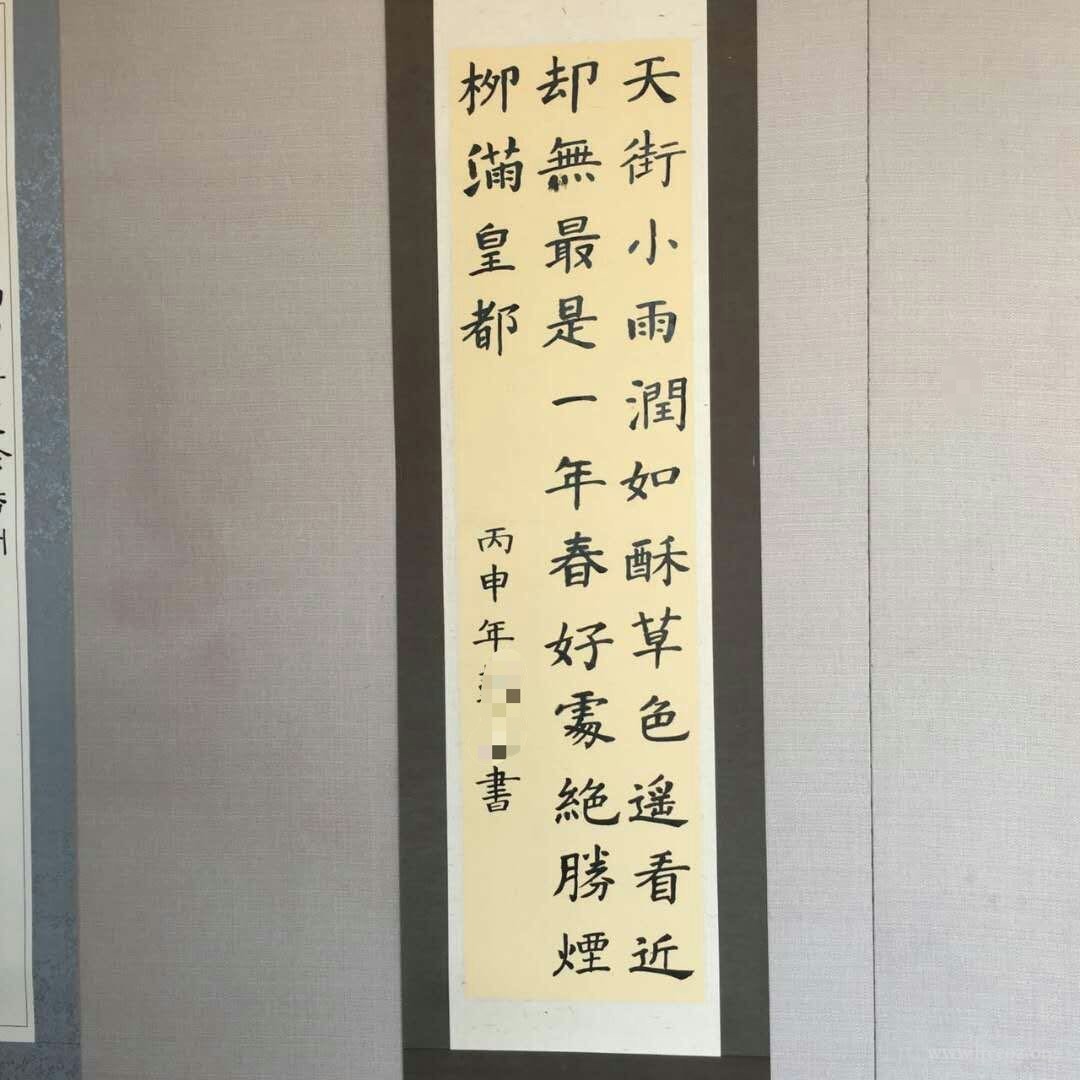 天街小雨潤如酥草色遥看近
却無最是一年春好處絶勝煙
柳滿皇都
丙申年
書